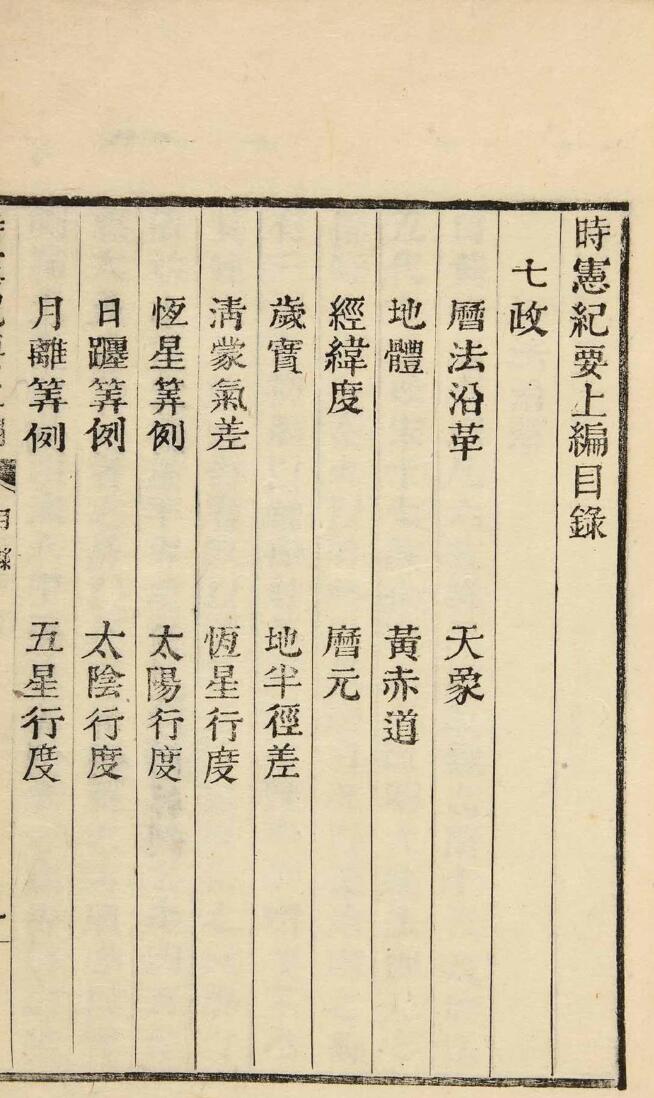 時憲紀要上編目錄
七政
曆法沿革 天象
地體 黃赤道
經緯度 曆元
歲實 地半徑差
清蒙氣差 恆星行度
恆星筭例 太陽行度
日躔筭例 太陰行度
月離筭例 五星行度
目錄